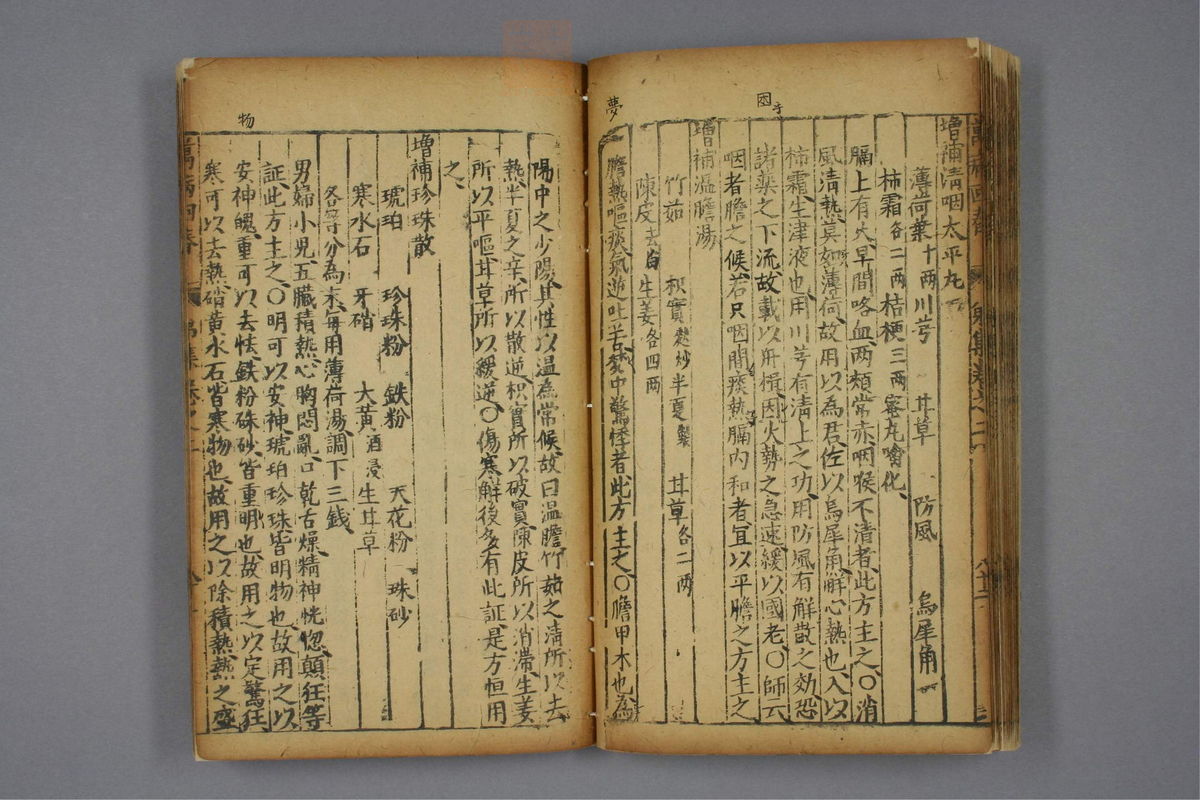 增補清咽太平丸
薄荷葉十兩 川芎 甘草 防風 烏犀角
柿霜各二兩 桔梗三兩 蜜丸噙化
膈上有火早間咯血兩頰常赤咽喉不清者此方主之○消
風清熱莫如薄荷故用以為君佐以烏犀角解心熱也入以
柿霜生津液也用川芎有清上之功用防風有解散之効恐
諸藥之下流故載以舟楫因火勢之急速緩以國老○師云
咽者膽之候若只咽間痰熱膈內和者宜以平膽之方主之
增補溫膽湯
竹茹 枳實麩炒 半夏製 甘草各二兩
陳皮去白 生姜各四兩
膽熱嘔痰氣逆吐苦夢中驚悸者此方主之○膽甲木也為
夢
陽中之少陽其性以温為常候故曰温膽竹茹之清所以去
熱半夏之辛所以散逆枳實所以破實陳皮所以消滯生姜
所以平嘔甘草所以緩逆○傷寒解後多有此証是方恒用
之
增補珍珠散
琥珀 珍珠粉 鉄粉 天花粉 珠砂
寒水石 牙硝 大黃酒浸 生甘草
各等分為末每用薄荷湯調下三錢
男婦小兒五臟積熱心胸悶亂口乾舌燥精神恍惚顛狂等
証此方主之○明可以安神琥珀珍珠皆明物也故用之以
安神魄重可以去怯鉄粉硃砂皆重明也故用之以定驚狂
寒可以去熱硝黃水石皆寒物也故用之以除積熱熱之盛
物